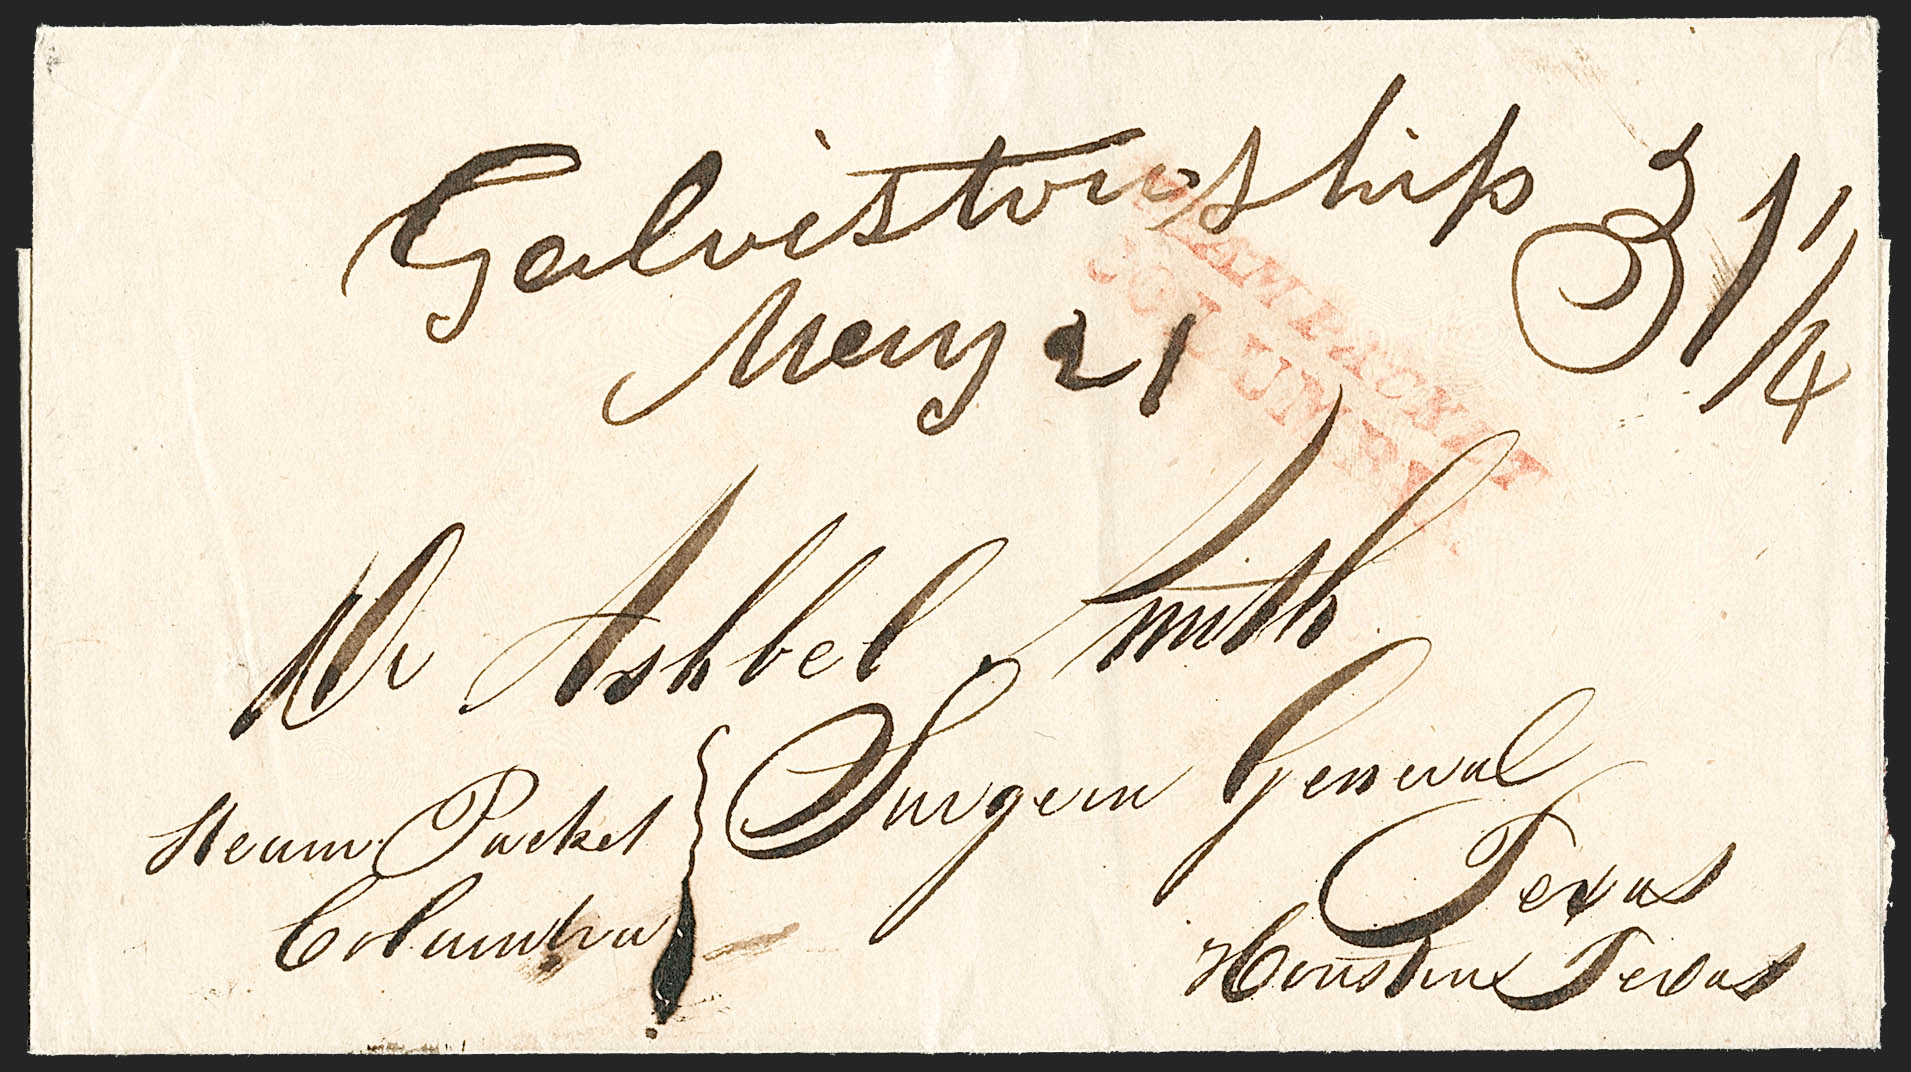 Galvistown ship 31 1/4
May 21
STEAM PACKET
COLUMBIA.
Dr Ashbel Smith
Surgeon General
Texas
Houston Texas
Steam Packet
Columbia